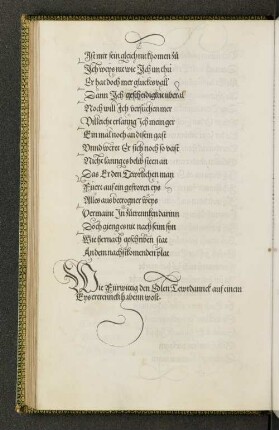 Ist mer sein gleich nie khomen zu
Ich weys nie wie Ich im thu
Er hat doch mer gluckes vall
Dann Ich geschedigkeit uberal
Noch will Ich versuchen mer
Villeicht erlanng Ich mein ger
Ein mal noch an disem gast
Unnd weret Er sich noch so vast
Nicht lanng es beleib steen an
Das Er den Tewrlichen man
Fueret auf ein gefroren eys
Alles aus betrogner weys
Vermaint In zu ertrenncken darinn
Doch gieng es nit nach seim sin
Wie hernach geschriben stat
An dem nachstkomenden plat
Wie Furwittig den Edlen Tewrdannck auf einem
Eys ertrennckht haben wolt.